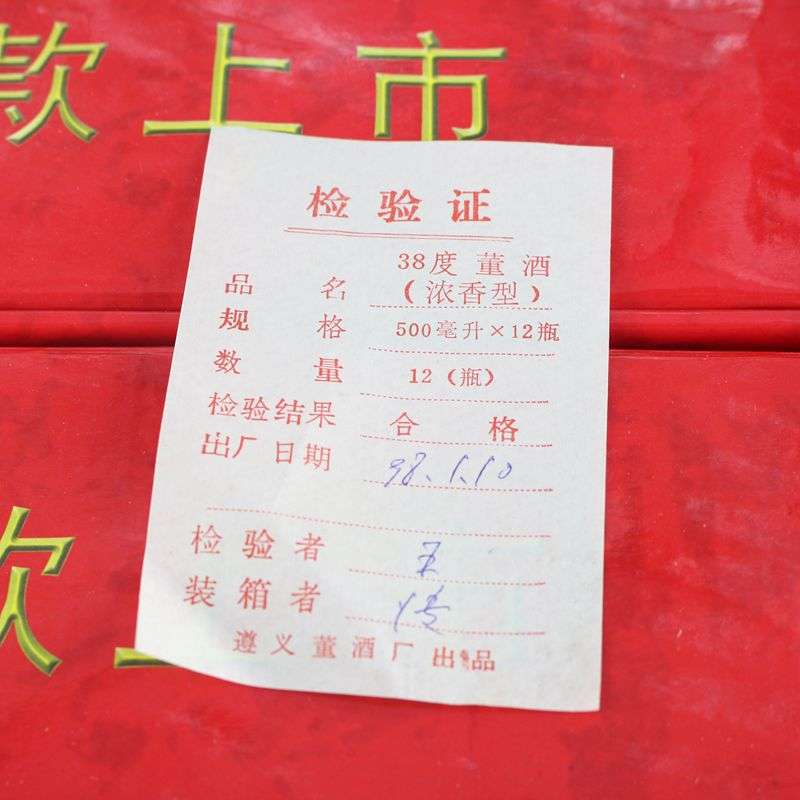 款上市
检验证
品名 38度 董酒
(浓香型)
规格 500毫升×12瓶
数量 12(瓶)
检验结果 合格
出厂日期 98.1.10
检验者 王
装箱者
遵义董酒厂出品
款上